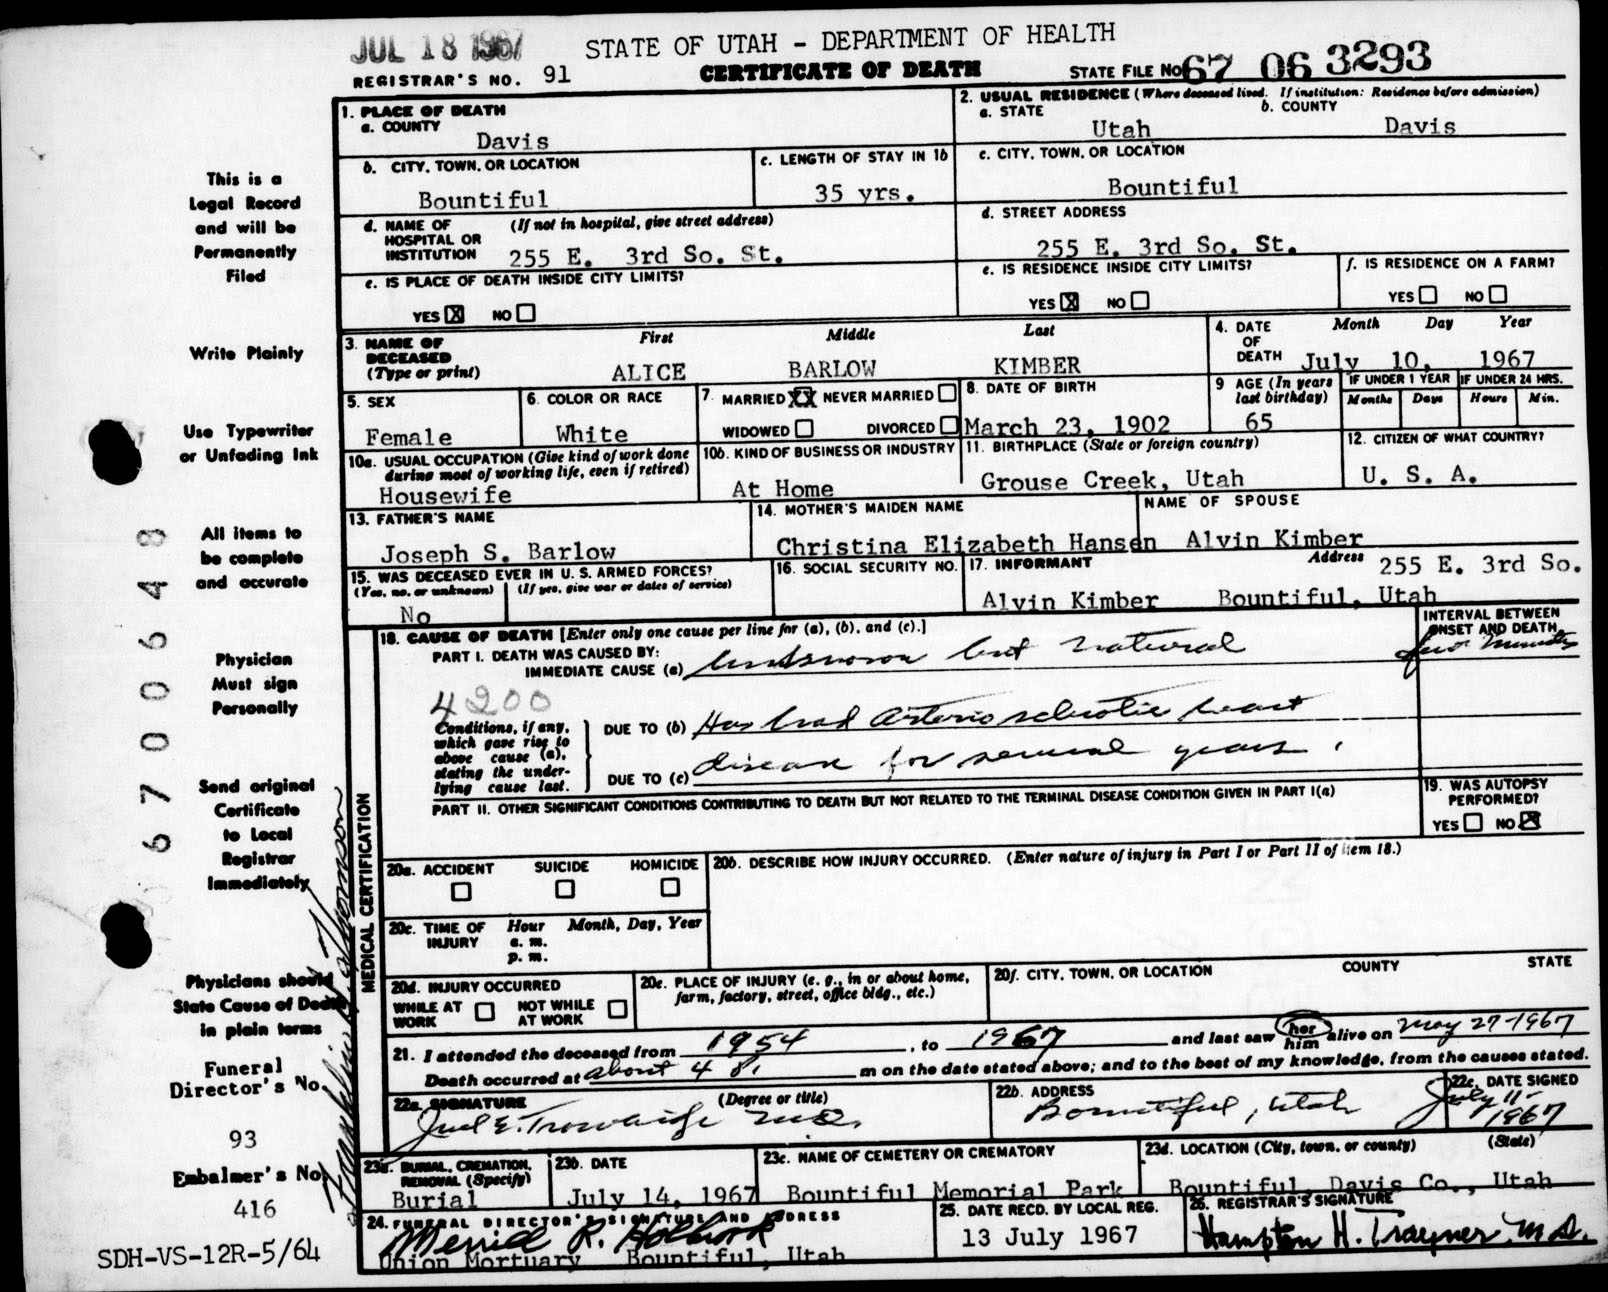 JUL 18 1967
STATE OF UTAH - DEPARTMENT OF HEALTH
REGISTRAR'S NO. 91
CERTIFICATE OF DEATH
STATE FILE NO. 67 06 3293
1. PLACE OF DEATH
a. COUNTY
Davis
2. USUAL RESIDENCE (Where deceased lived. If institution: Residence before admission)
a. STATE
Utah
b. COUNTY
Davis
b. CITY, TOWN, OR LOCATION
Bountiful
c. LENGTH OF STAY IN 1b
35 yrs.
c. CITY, TOWN, OR LOCATION
Bountiful
d. NAME OF HOSPITAL OR INSTITUTION
(If not in hospital, give street address)
255 E. 3rd So. St.
d. STREET ADDRESS
255 E. 3rd So. St.
e. IS PLACE OF DEATH INSIDE CITY LIMITS?
YES X NO
e. IS RESIDENCE INSIDE CITY LIMITS?
YES X NO
f. IS RESIDENCE ON A FARM?
YES NO
3. NAME OF DECEASED (Type or print)
First Middle Last
ALICE BARLOW KIMBER
4. DATE OF DEATH
Month Day Year
July 10, 1967
5. SEX
Female
6. COLOR OR RACE
White
7. MARRIED XX NEVER MARRIED
WIDOWED DIVORCED
8. DATE OF BIRTH
March 23, 1902
9 AGE (In years last birthday)
65
IF UNDER 1 YEAR
Months Days
IF UNDER 24 HRS.
Hours Min.
10a. USUAL OCCUPATION (Give kind of work done during most of working life, even if retired)
Housewife
10b. KIND OF BUSINESS OR INDUSTRY
At Home
11. BIRTHPLACE (State or foreign country)
Grouse Creek, Utah
12. CITIZEN OF WHAT COUNTRY?
U. S. A.
13. FATHER'S NAME
Joseph S. Barlow
14. MOTHER'S MAIDEN NAME
Christina Elizabeth Hansen
NAME OF SPOUSE
Alvin Kimber
15. WAS DECEASED EVER IN U. S. ARMED FORCES?
(Yes, no, or unknown) (If yes, give war or dates of service)
No
16. SOCIAL SECURITY NO.
17. INFORMANT
Address
255 E. 3rd So.
Alvin Kimber Bountiful, Utah
MEDICAL CERTIFICATION
18. CAUSE OF DEATH [Enter only one cause per line for (a), (b), and (c).]
INTERVAL BETWEEN ONSET AND DEATH
PART I. DEATH WAS CAUSED BY:
IMMEDIATE CAUSE (a) Unknown but natural
few minutes
4200
Conditions, if any, which gave rise to above cause (a), stating the underlying cause last.
DUE TO (b) Has had arterio sclerotic heart
DUE TO (c) disease for several years.
PART II. OTHER SIGNIFICANT CONDITIONS CONTRIBUTING TO DEATH BUT NOT RELATED TO THE TERMINAL DISEASE CONDITION GIVEN IN PART I(a)
19. WAS AUTOPSY PERFORMED?
YES NO X
20a. ACCIDENT SUICIDE HOMICIDE
20b. DESCRIBE HOW INJURY OCCURRED. (Enter nature of injury in Part I or Part II of item 18.)
20c. TIME OF INJURY
Hour Month, Day, Year
a. m.
p. m.
20d. INJURY OCCURRED
WHILE AT WORK NOT WHILE AT WORK
20e. PLACE OF INJURY (e. g., in or about home, farm, factory, street, office bldg., etc.)
20f. CITY, TOWN, OR LOCATION COUNTY STATE
21. I attended the deceased from 1954, to 1967 and last saw her him alive on May 27-1967
Death occurred at about 4 m on the date stated above; and to the best of my knowledge, from the causes stated.
22a. SIGNATURE (Degree or title)
22b. ADDRESS
Bountiful, Utah
22c. DATE SIGNED
July 11-1967
23a. BURIAL, CREMATION, REMOVAL (Specify)
Burial
23b. DATE
July 14, 1967
23c. NAME OF CEMETERY OR CREMATORY
Bountiful Memorial Park
23d. LOCATION (City, town, or county) (State)
Bountiful, Davis Co., Utah
24. FUNERAL DIRECTOR'S SIGNATURE AND ADDRESS
Merrill R. Holbrook
Union Mortuary Bountiful, Utah
25. DATE RECD. BY LOCAL REG.
13 July 1967
26. REGISTRAR'S SIGNATURE
Hampton H. Trayner, M.D.
This is a
Legal Record
and will be
Permanently
Filed
Write Plainly
Use Typewriter
or Unfading Ink
All items to
be complete
and accurate
Physician
Must sign
Personally
Send original
Certificate
to Local
Registrar
Immediately
Physicians should
State Cause of Death
in plain terms
Funeral
Director's No.
93
Embalmer's No.
416
SDH-VS-12R-5/64
6700648